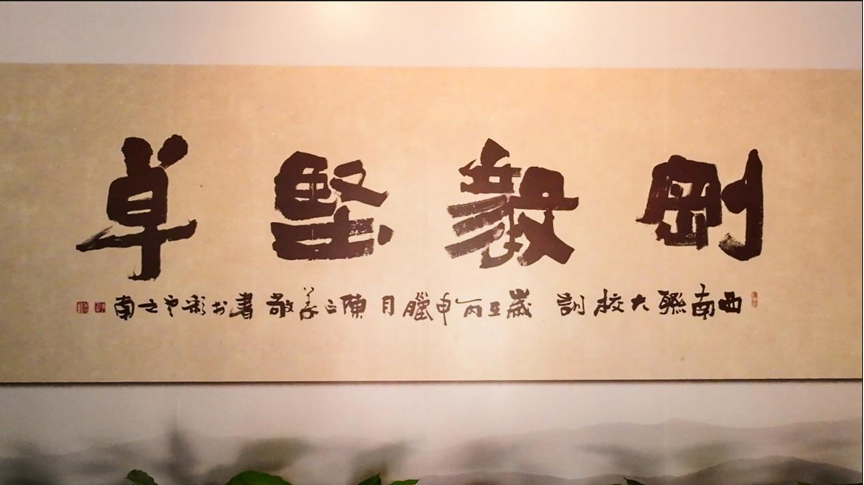 剛毅堅卓
西南聯大校訓 歲在丙申臘月 陳 義敬書於彩云之南